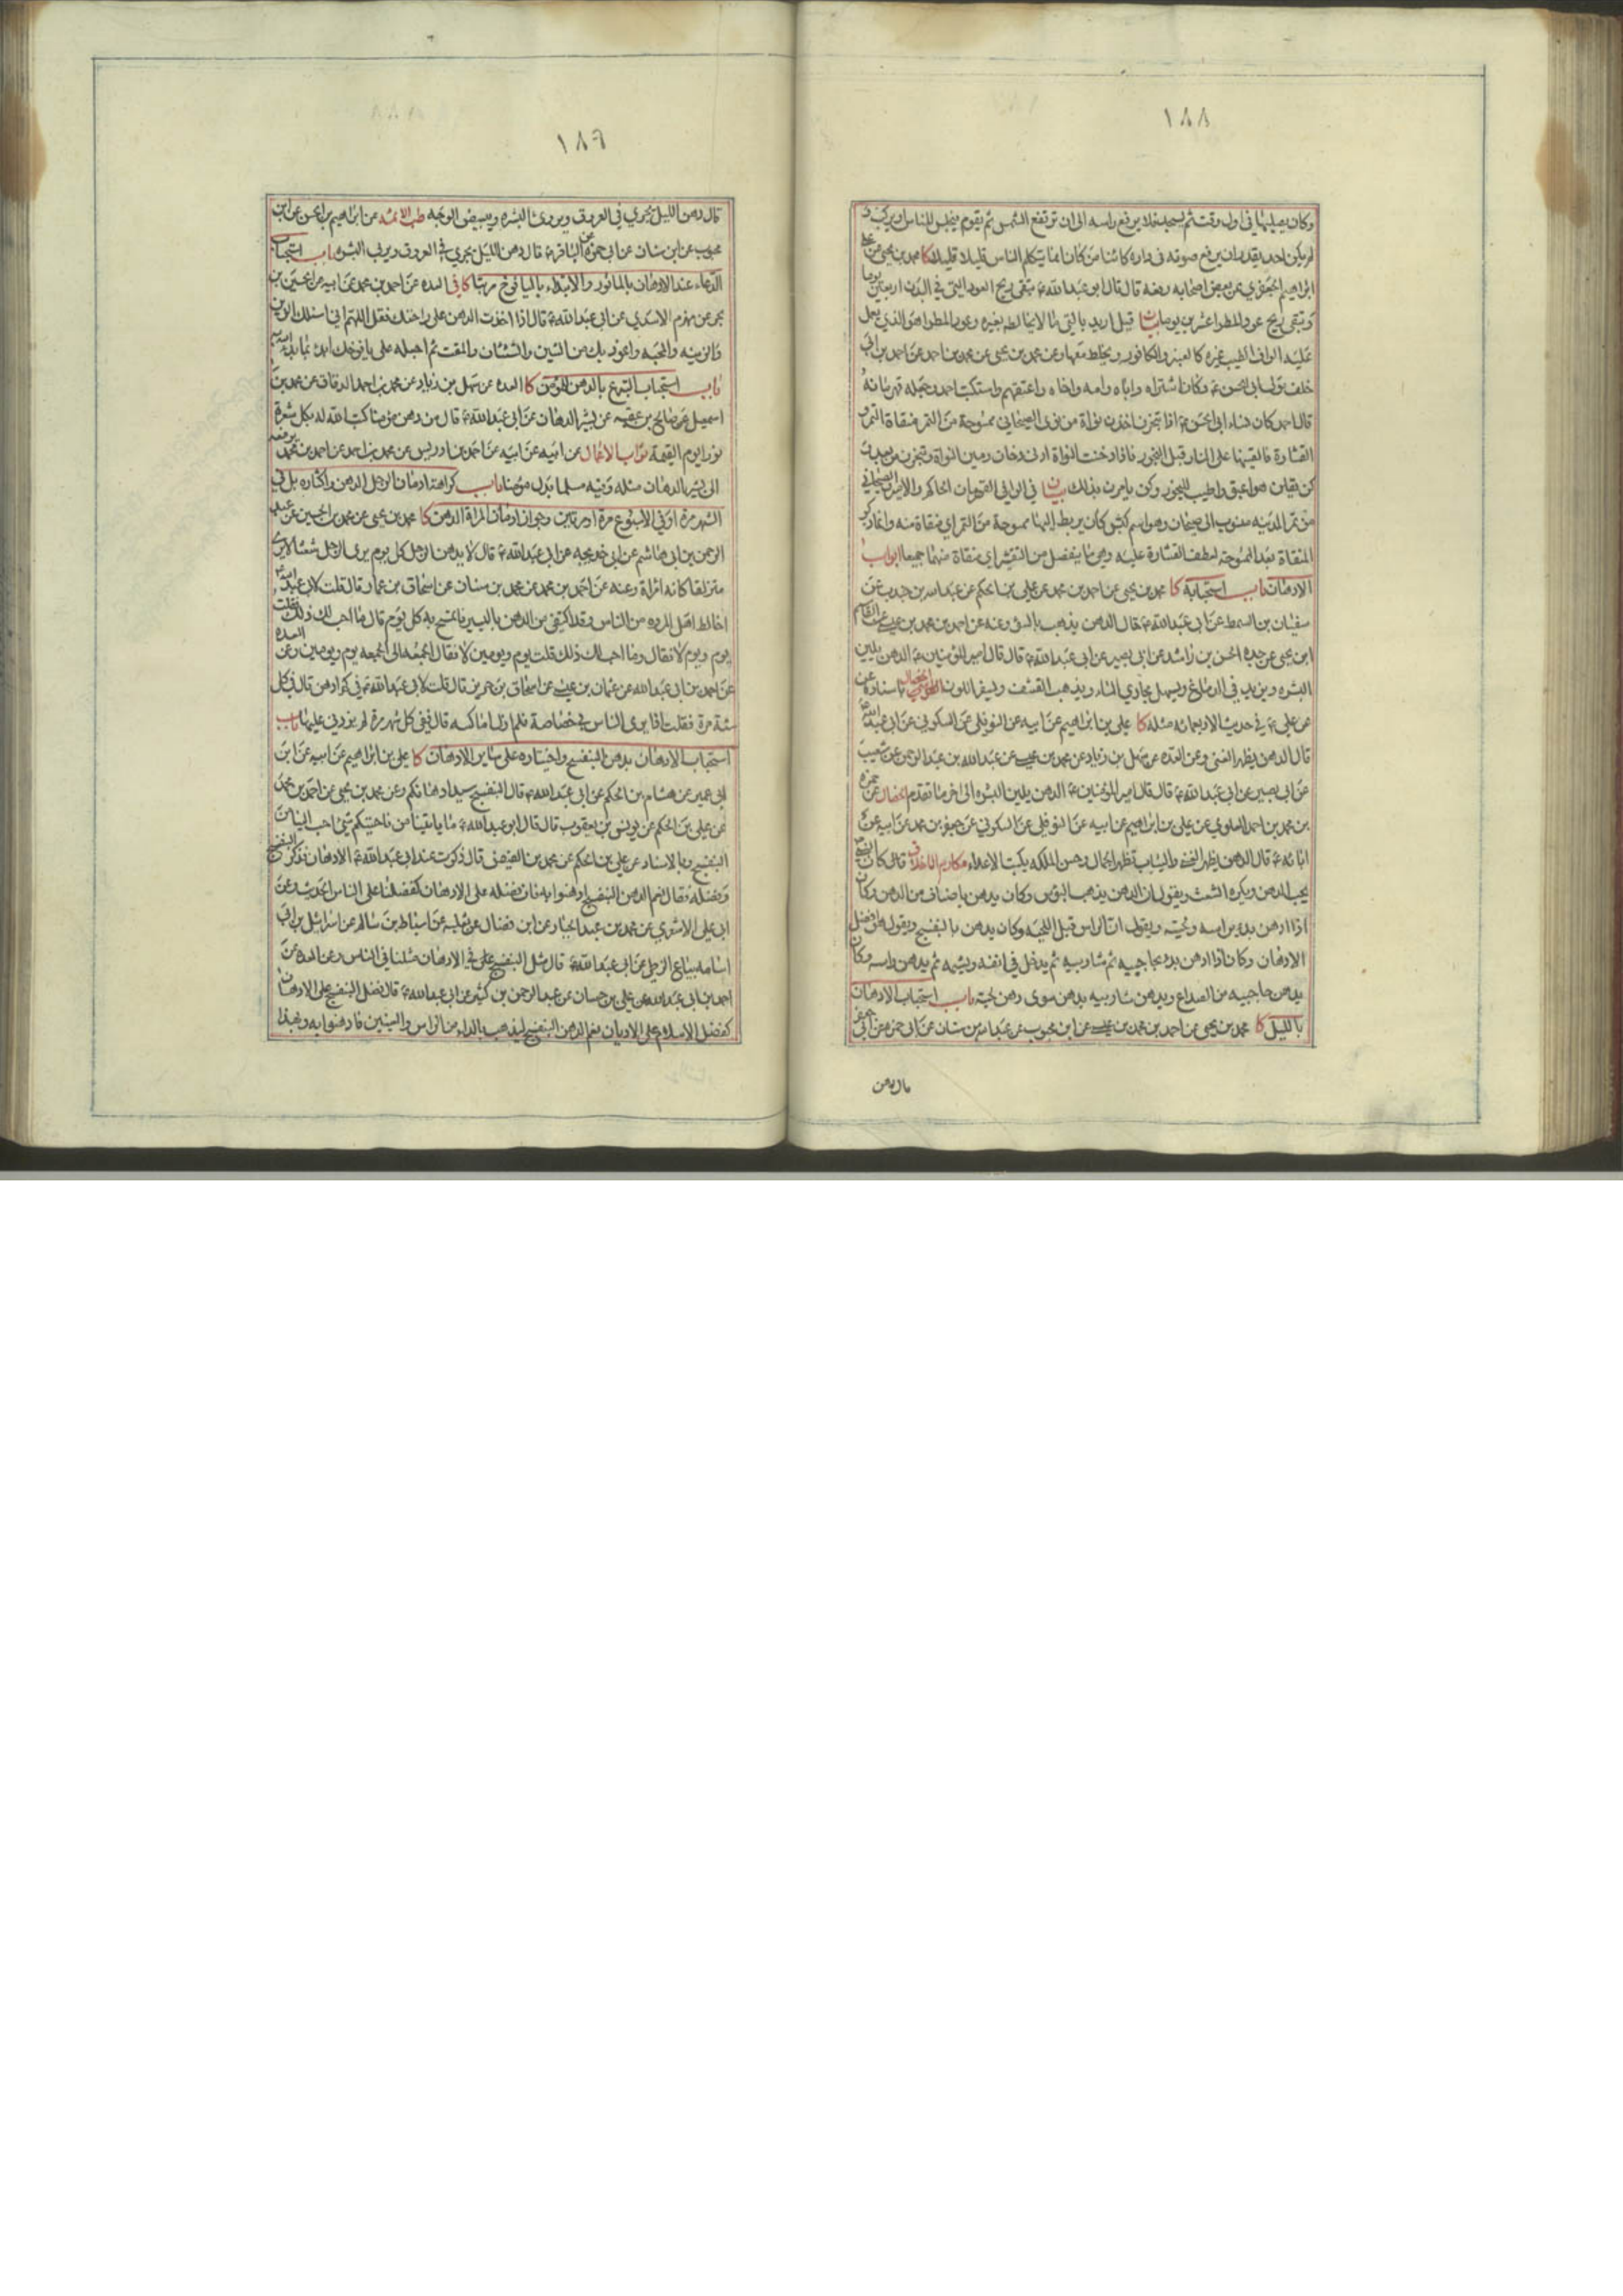 ١٨٨
وكان يصليها في اول وقت ثم يسجد فلا يرفع راسه الى ان ترتفع الشمس ثم يقوم فيجلس للناس او يركب و
لم يكن احد يقدر ان يرفع صوته في داره كائنا من كان انما يتكلم الناس قليلا قليلا كا محمد بن يحيى عن
ابراهيم الجعفري عن بعض اصحابه رفعه قال قال ابو عبد الله ع تبقى ريح العود التي في البدن اربعين يوما
وتبقى ريح عود المطرا عشرين يوما بيان قيل اريد بالتي ما لا يخالطه بغيره وعود المطراه هو الذي يعمل
عليه الوان الطيب غيره كالعنبر والكافور ويخلط معها وعن محمد بن يحيى عن محمد بن احمد عن احمد بن ابي
خلف مولى ابي الحسن ع وكان اشتراه واباه وامه واخاه واعتقهم واستكتب احمد وجعله قهرمانه
قال احمد كان نساء ابي الحسن ع اذا تبخرن اخذن نواة من نوى الصيحاني ممسوحة من التمر منقاة التمر و
القشارة فالقينها على النار قبل البخور فاذا دخنت النواة ادنى دخان رمين النواة وتبخرن من بعد و
كن يقلن هو اعبق واطيب للبخور وكن يامرن بذلك بيان في الوافي القهرمان الحاكم والامين والصيحاني
من تمر المدينه منسوب الى صيحان وهو اسم كبش كان يربط اليها ممسوحة من التمر اي منقاة منه وانما ذكر
المنقاة بعد الممسوحة لعطف القشارة عليه وهي ما ينفصل من القشر اي منقاة منهما جميعا ابواب
الادهان باب استحبابه كا محمد بن يحيى عن احمد بن محمد عن علي بن الحكم عن عبد الله بن جندب عن
سفيان بن السمط عن ابي عبد الله ع قال الدهن يذهب بالسوء وعنه عن احمد بن محمد بن عيسى عن القاسم
ابن يحيى عن جده الحسن بن راشد عن ابي بصير عن ابي عبد الله ع قال قال امير المؤمنين ع الدهن يلين
البشره ويزيد في الدماغ ويسهل مجاري الماء ويذهب القشف ويسفر اللون الخصال باسناده عن
عن علي ع في حديث الاربعمائه مثله كا علي بن ابراهيم عن ابيه عن النوفلي عن السكوني عن ابي عبد الله ع
قال الدهن يظهر الغنى وعن العده عن سهل بن زياد عن محمد بن عيسى عن عبد الله بن عبد الرحمن عن شعيب
عن ابي بصير عن ابي عبد الله ع قال قال امير المؤمنين ع الدهن يلين البشره الى اخر ما تقدم الخصال عن حمزه
بن محمد بن احمد العلوي عن علي بن ابراهيم عن ابيه عن النوفلي عن السكوني عن جعفر بن محمد عن ابيه عن
ابائه ع قال الدهن يظهر الغنى والثياب تظهر الجمال وحسن الملكه يكبت الاعداء مكارم الاخلاق قال كان النبي ص
يحب الدهن ويكره الشعث ويقول ان الدهن يذهب البؤس وكان يدهن باصناف من الدهن وكان
اذا ادهن بدء براسه ولحيته ويقول ان الراس قبل اللحيه وكان يدهن بالبنفسج ويقول هو افضل
الادهان وكان اذا ادهن بدء بحاجبيه ثم شاربيه ثم يدخل في انفه ويشمه ثم يدهن راسه وكان
يدهن حاجبيه من الصداع ويدهن شاربيه بدهن سوى دهن لحيته باب استحباب الادهان
بالليل كا محمد بن يحيى عن احمد بن محمد بن عيسى عن ابن محبوب عن عبد الله بن سنان عن ابي حمزه عن ابي جعفر ع
قال دهن
١٨٩
قال دهن الليل يجري في العروق ويروي البشره ويبيض الوجه طب الائمه عن ابراهيم بن الحسن عن ابن
محبوب عن ابن سنان عن ابي حمزه عن الباقر ع قال دهن الليل يجري في العروق ويربي البشره باب استحباب
الدعاء عند الادهان بالماثور والابتداء باليافوخ مرتبا كافى العده عن احمد بن محمد عن ابيه عن الحسين بن
بحر عن مهزم الاسدي عن ابي عبد الله ع قال اذا اخذت الدهن على راحتك فقل اللهم اني اسئلك الزين
والزينه والمحبه واعوذ بك من الشين والشنئان والمقت ثم اجعله على يافوخك ابدء بما بدء الله به
باب استحباب التبرع بالدهن للمؤمن كا العده عن سهل بن زياد عن محمد بن احمد الدقاق عن محمد بن
اسمعيل عن صالح بن عقبه عن بشير الدهان عن ابي عبد الله ع قال من دهن مؤمنا كتب الله له بكل شعرة
نورا يوم القيمة ثواب الاعمال عن ابيه عن احمد بن ادريس عن محمد بن احمد عن احمد بن محمد يرفعه
الى بشير الدهان مثله وفيه مسلما بدل مؤمنا باب كراهة ادمان الرجل الدهن واكثاره بل في
الشهر مرة او في الاسبوع مرة او مرتين وجواز ادمان المراة الدهن كا محمد بن يحيى عن محمد بن الحسين عن عبد
الرحمن بن ابي هاشم عن ابي خديجه عن ابي عبد الله ع قال لا يدهن الرجل كل يوم يرى الرجل شعثا لا يرى
متزلقا كانه امراة وعنه عن احمد بن محمد عن محمد بن سنان عن اسحاق بن عمار قال قلت لابي عبد الله ع
اخالط اهل المروه من الناس وقد اكتفي من الدهن باليسير فاتمسح به كل يوم قال ما احب لك ذلك فقلت
يوم ويوم لا فقال وما احب لك ذلك قلت يوم ويومين لا فقال الجمعه الى الجمعه يوم ويومين وعن العده
عن احمد بن ابي عبد الله عن عثمان بن عيسى عن اسحاق بن جرير قال قلت لابي عبد الله ع في كم ادهن قال في كل
سنة مرة فقلت اذا يرى الناس بي خصاصة فلم ازل اماكسه قال ففي كل شهر مرة لم يزدني عليها باب
استحباب الادهان بدهن البنفسج واختياره على ساير الادهان كا علي بن ابراهيم عن ابيه عن ابن
ابي عمير عن هشام بن الحكم عن ابي عبد الله ع قال البنفسج سيد ادهانكم وعن محمد بن يحيى عن احمد بن محمد
عن علي بن الحكم عن يونس بن يعقوب قال قال ابو عبد الله ع ما ياتينا من ناحيتكم شيء احب الينا من
البنفسج وبالاسناد عن علي بن الحكم عن محمد بن الفيض قال ذكرت عند ابي عبد الله ع الادهان فذكر البنفسج
وفضله فقال نعم الدهن البنفسج ادهنوا به فان فضله على الادهان كفضلنا على الناس الحديث وعن
ابي علي الاشعري عن محمد بن عبد الجبار عن ابن فضال عن ثعلبه عن اسباط بن سالم عن اسرائيل بن ابي
اسامه بياع الزطي عن ابي عبد الله ع قال مثل البنفسج في الادهان مثلنا في الناس وعن العده عن
احمد بن ابي عبد الله عن علي بن حسان عن عبد الرحمن بن كثير عن ابي عبد الله ع قال فضل البنفسج على الادهان
كفضل الاسلام على الاديان نعم الدهن البنفسج ليذهب بالداء من الراس والعينين فادهنوا به وبهذا